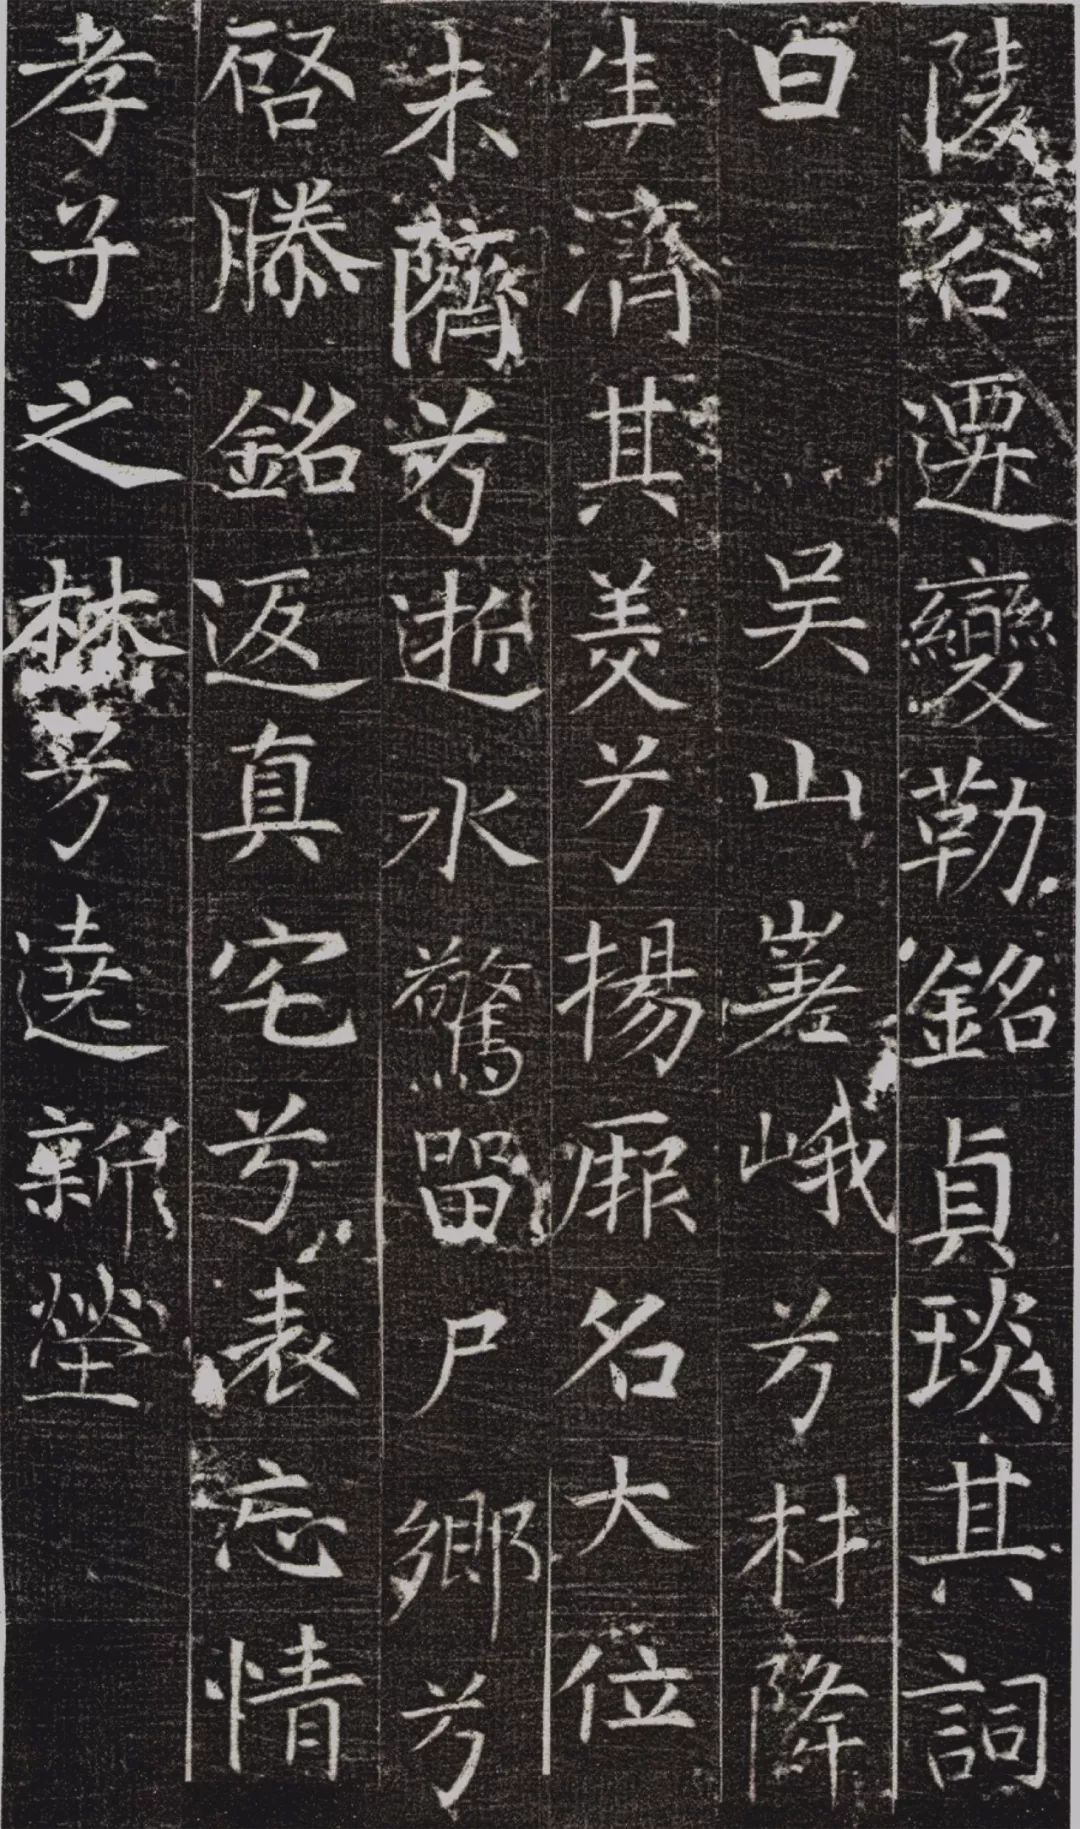 陵谷遷變勒銘貞琰其詞
曰吴山嵳峨兮材降
生濟其美兮揚庭名大位
未隮兮逝水驚留尸鄉兮
啓滕銘返真宅兮表忘情
孝子之兮遶新塋